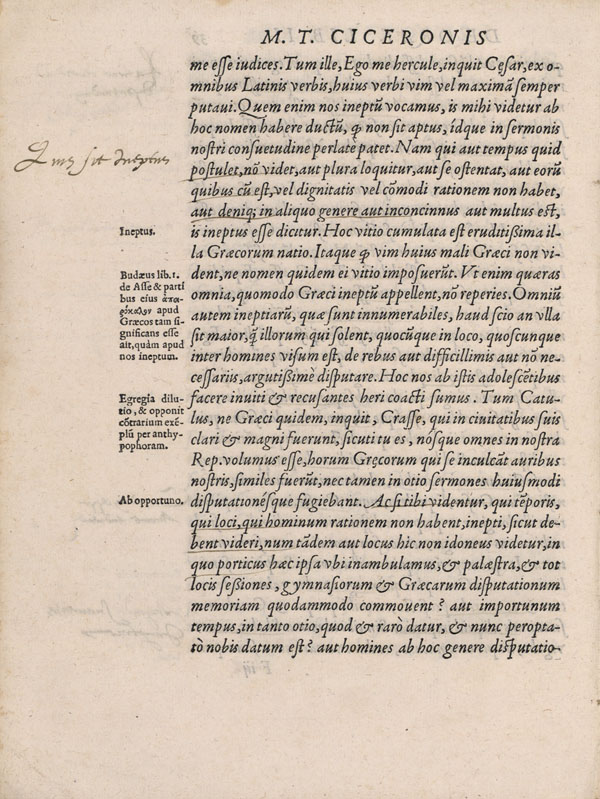 M. T. CICERONIS
me esse iudices. Tum ille, Ego me hercule, inquit Cęsar, ex o-
mnibus Latinis verbis, huius verbi vim vel maximã semper
putaui. Quem enim nos ineptũ vocamus, is mihi videtur ab
hoc nomen habere ductũ, ꝙ non sit aptus, ídque in sermonis
nostri consuetudine perlate patet. Nam qui aut tempus quid
postulet, nõ videt, aut plura loquitur, aut se ostentat, aut eorũ
quibus cũ est, vel dignitatis vel cõmodi rationem non habet,
aut deniq; in aliquo genere aut inconcinnus aut multus est,
is ineptus esse dicitur. Hoc vitio cumulata est eruditissima il-
la Græcorum natio. Itaque ꝙ vim huius mali Græci non vi-
dent, ne nomen quidem ei vitio imposuerũt. Vt enim quæras
omnia, quomodo Græci ineptũ appellent, nõ reperies. Omniũ
autem ineptiarũ, quæ sunt innumerabiles, haud scio an vlla
sit maior, q̃ illorum qui solent, quocũque in loco, quoscunque
inter homines visum est, de rebus aut difficillimis aut nõ ne-
cessariis, argutissimè disputare. Hoc nos ab istis adolescẽtibus
facere inuiti & recusantes heri coacti sumus. Tum Catu-
lus, ne Græci quidem, inquit, Crasse, qui in ciuitatibus suis
clari & magni fuerunt, sicuti tu es, nósque omnes in nostra
Rep. volumus esse, horum Gręcorum qui se inculcãt auribus
nostris, similes fuerũt, nec tamen in otio sermones huiusmodi
disputationésque fugiebant. Ac si tibi videntur, qui tẽporis,
qui loci, qui hominum rationem non habent, inepti, sicut de-
bent videri, num tãdem aut locus hic non idoneus videtur, in
quo porticus hæc ipsa vbi inambulamus, & palæstra, & tot
locis sessiones, gymnasiorum & Græcarum disputationum
memoriam quodammodo commouent? aut importunum
tempus, in tanto otio, quod & rarò datur, & nunc peropta-
tò nobis datum est? aut homines ab hoc genere disputatio-
Quis sit Ineptus
Ineptus.
Budæus lib. 1.
de Asse & parti
bus eius ἀπει-
ρόκαλον apud
Græcos tam si-
gnificans esse
ait, quàm apud
nos ineptum.
Egregia dilu-
tio, & opponit
cõtrarium exẽ-
plũ per anthy-
pophoram.
Ab opportuno.